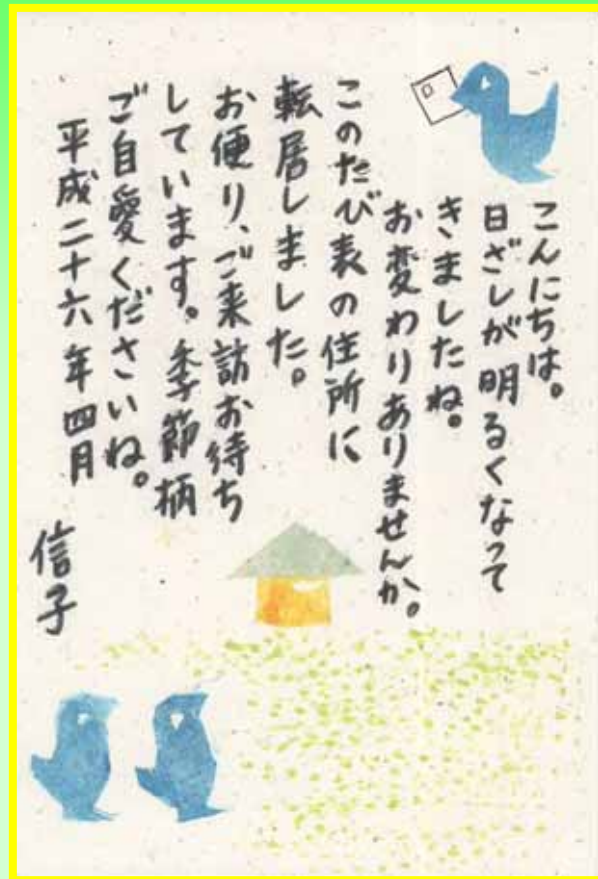 こんにちは。
日ざしが明るくなって
きましたね。
お変わりありませんか。
このたび表の住所に
転居しました。
お便り、ご来訪お待ち
しています。季節柄
ご自愛くださいね。
平成二十六年四月
信子